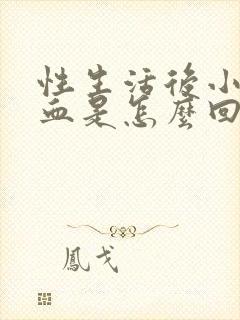 性生活後小
血是怎麼回
鳳戈